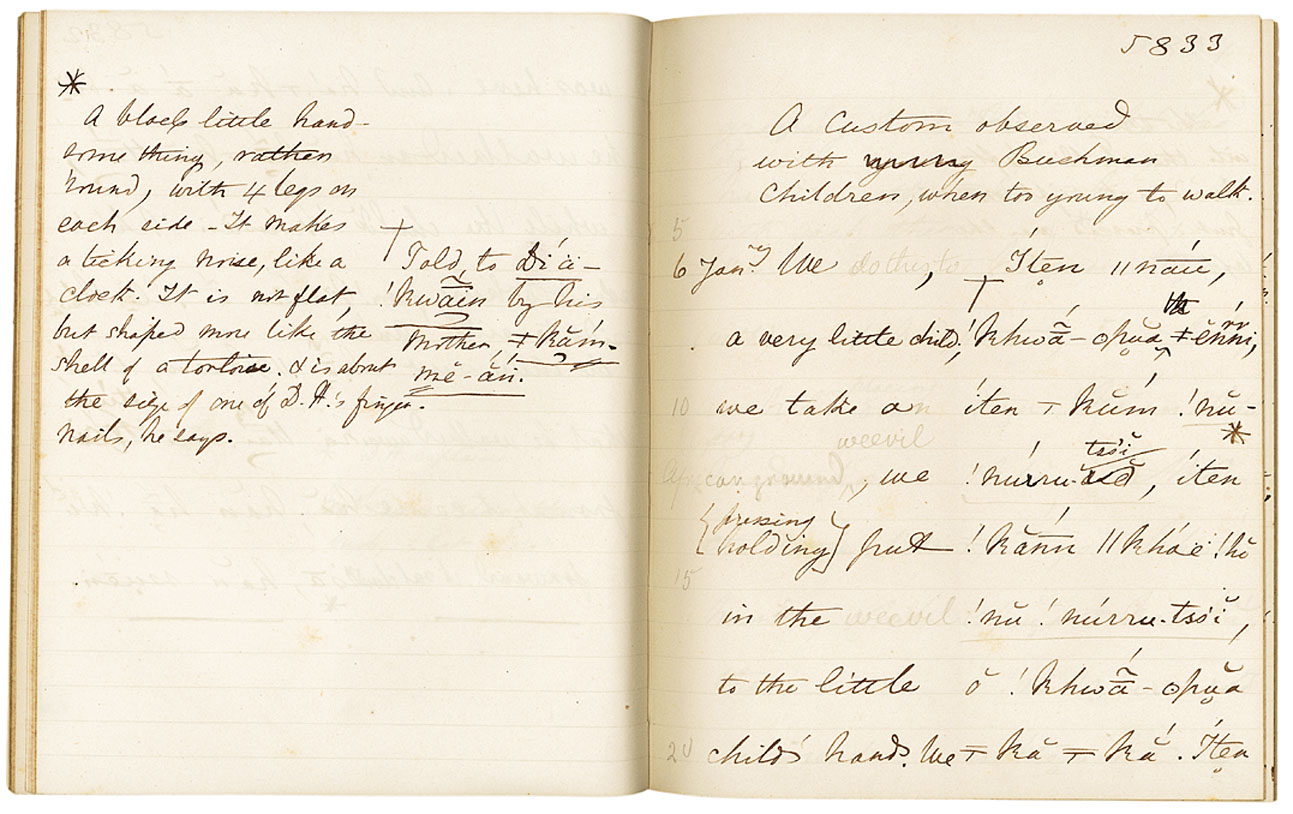 *
A black little hand-
some thing, rather
round, with 4 legs on
each side - It makes
a ticking noise, like a
clock. It is not flat,
but shaped more like the
shell of a tortoise. & is about
the size of one of D. H.'s finger-
nails, he says.
Told, to Díä-
!kwãin by his
mother ǂkăm-
mĕ-ăń.
5833
A Custom observed
with young Bushman
Children, when too young to walk.
5
6 Jan.ry We do this to, Íten ǁnáu,
a very little child, !khwã́-ʘpŭa ǂĕńni,
10 we take an íten ǂkúm !nŭ-
weevil
African ground, we !núrru-tsŏĭ, íten *
{pressing
holding} put !kăńn ǁkhóë !hŏ
15
in the weevil !nŭ !núrru-tsŏĭ,
to the little ŏ !khwã́-ʘpŭa
20 child's hands. We ǂkă ǂkắ. Íten